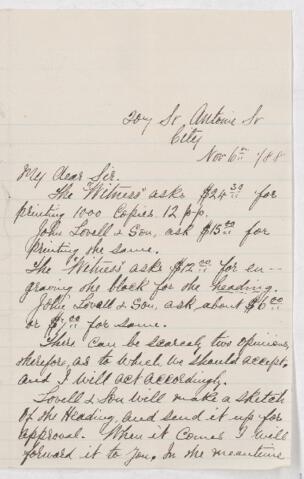 St. Antoine St
City
Nov 6th /88
My dear Sir.
The "Witness" asks $24.30 for
printing 1000 Copies. 12 p.p.
John Lovell & Son, ask $15.00 for
printing the same.
The "Witness" asks $12.00 for en-
graving the block for the heading.
John Lovell & Son, ask about $6.00
or $7.00 for same.
There can be scarcely two opinions
therefore, as to which we should accept.
and I will act accordingly.
Lovell & Son will make a sketch
of the Heading, and send it up for
approval. When it comes I will
forward it to you. In the meantime